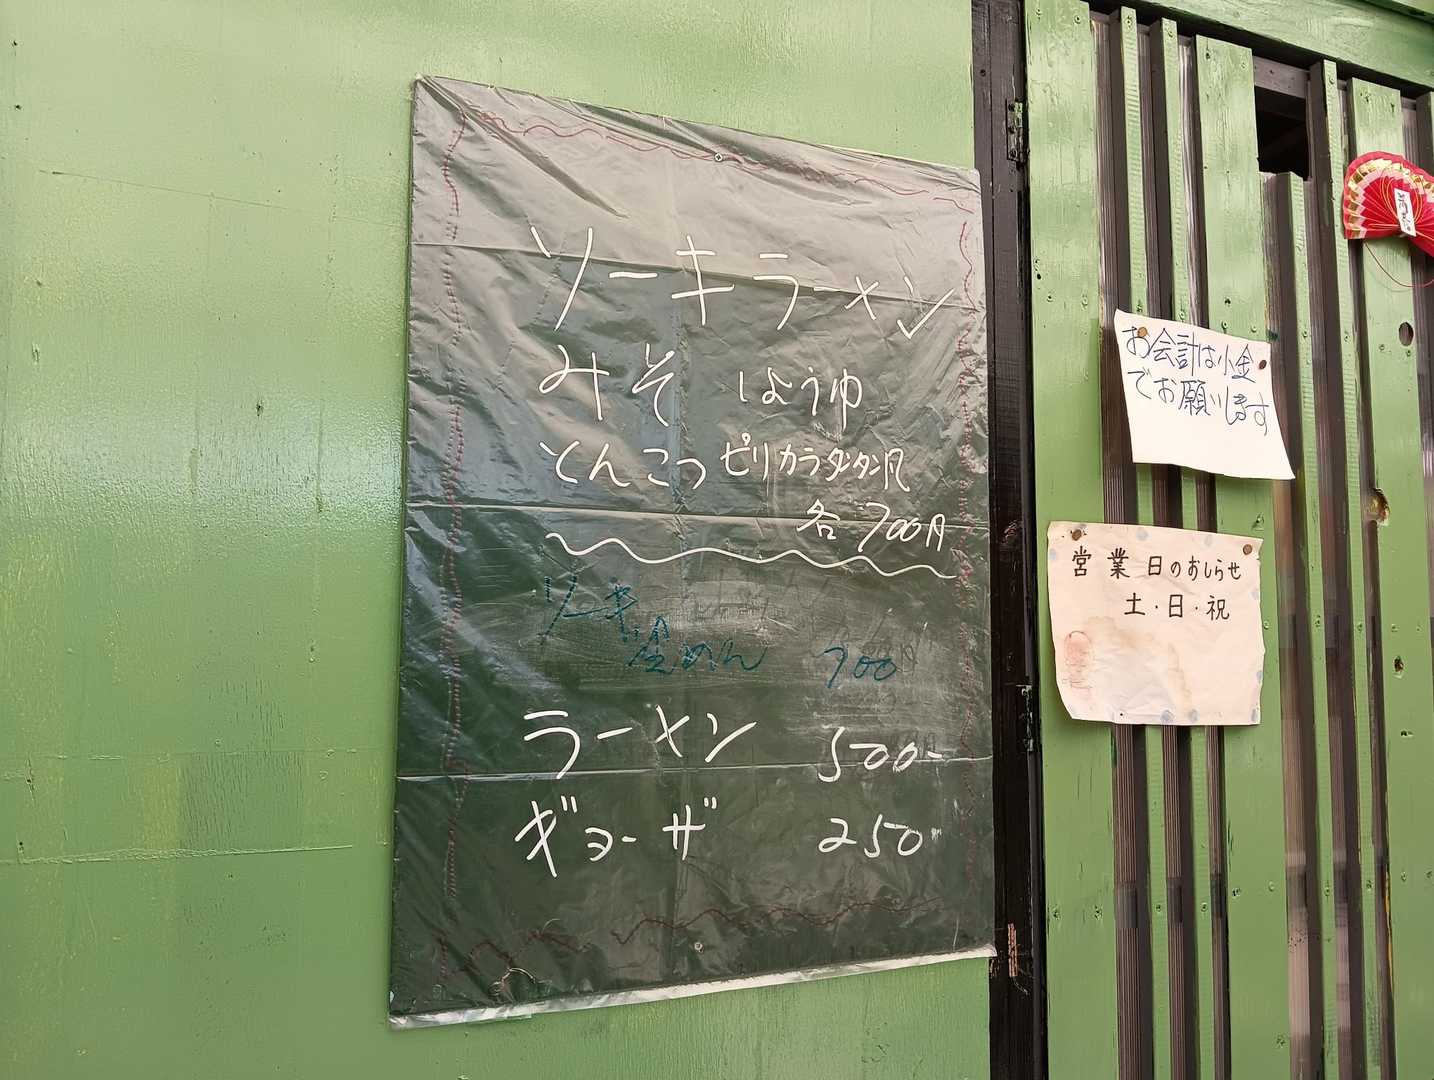 ソーキラーメン
みそ しょうゆ
とんこつ ピリカラタンタン風
各 700円
ソーキ
冷めん 700
ラーメン 500-
ギョーザ 250-
お会計は小金
でお願いします
営業日のおしらせ
土・日・祝